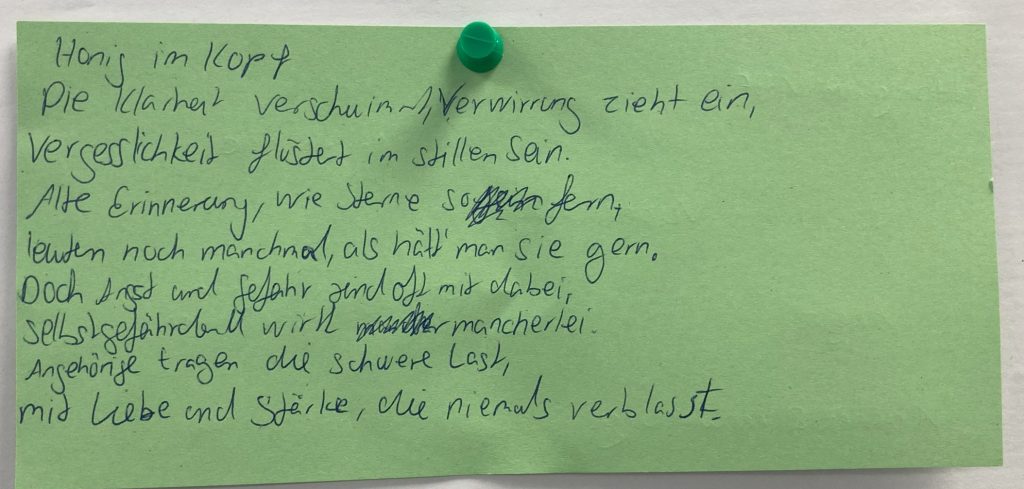 Honig im Kopf
Die Klarheit verschwimmt, Verwirrung zieht ein,
Vergesslichkeit flüstert im stillen Sein.
Alte Erinnerung, wie Sterne so fern,
leuten noch manchmal, als hätt' man sie gern.
Doch Angst und Gefahr sind oft mit dabei,
selbstgefährdend wirkt mancherlei.
Angehörige tragen die schwere Last,
mit Liebe und Stärke, die niemals verblasst.